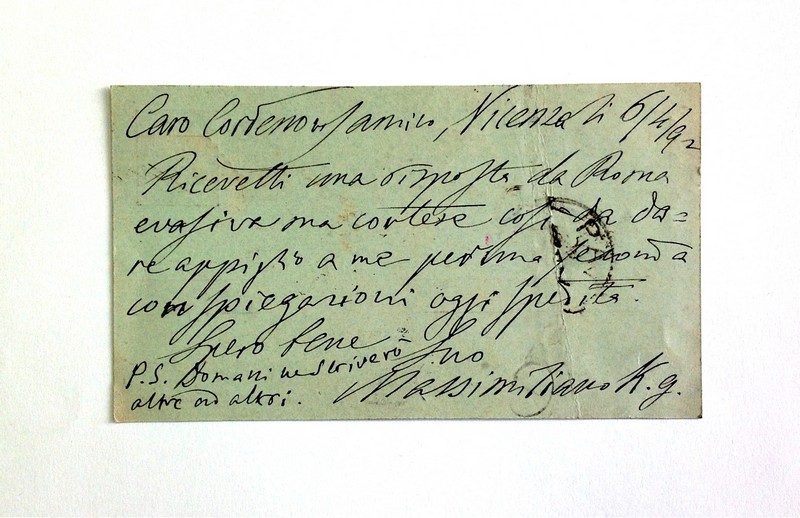 Caro Cordenons amico, Vicenza li 6/4/92
Ricevetti una risposta da Roma
evasiva ma cortese così da da=
re appiglio a me per una seconda
con spiegazioni oggi spedita.
Spero bene Suo
Massimiliano K. g.
P.S. Domani ne scriverò
altre ad altri.